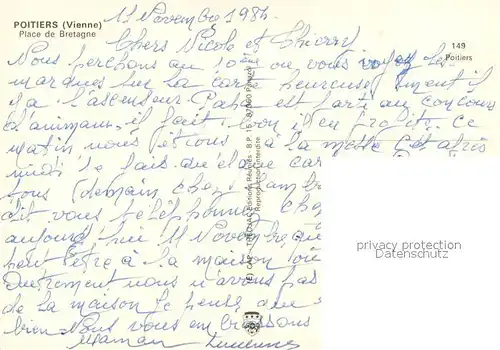 POITIERS (Vienne)
Place de Bretagne
11 Novembre 198
Chers Nicole et Thierry
149
Poitiers
Nous perchons au 10ème ou vous voyez les
marques sur la carte heureusement il
y a l'ascenseur. Papa est parti au concours
d'animaux, il fait bon il en profit. ce
matin nous étions à la messe cet après
midi je
tous demain chez
dit vous téléphoner
aujourd'hui 11 Novembre
peut être à la maison
autrement nous n'avons pas
de la maison Je pense que
bien Nous vous embrassons
Maman Lucienne
Reproduction interdite
privacy protection
Datenschutz